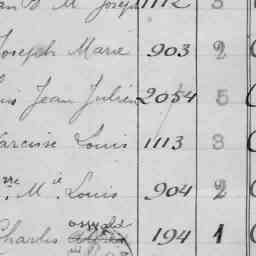 M Joseph 1112 3
Joseph Marie 903 2
Jean Julien 2054 5
Narcisse Louis 1113 3
rre M el Louis 904 2
Charles oswald 194 1